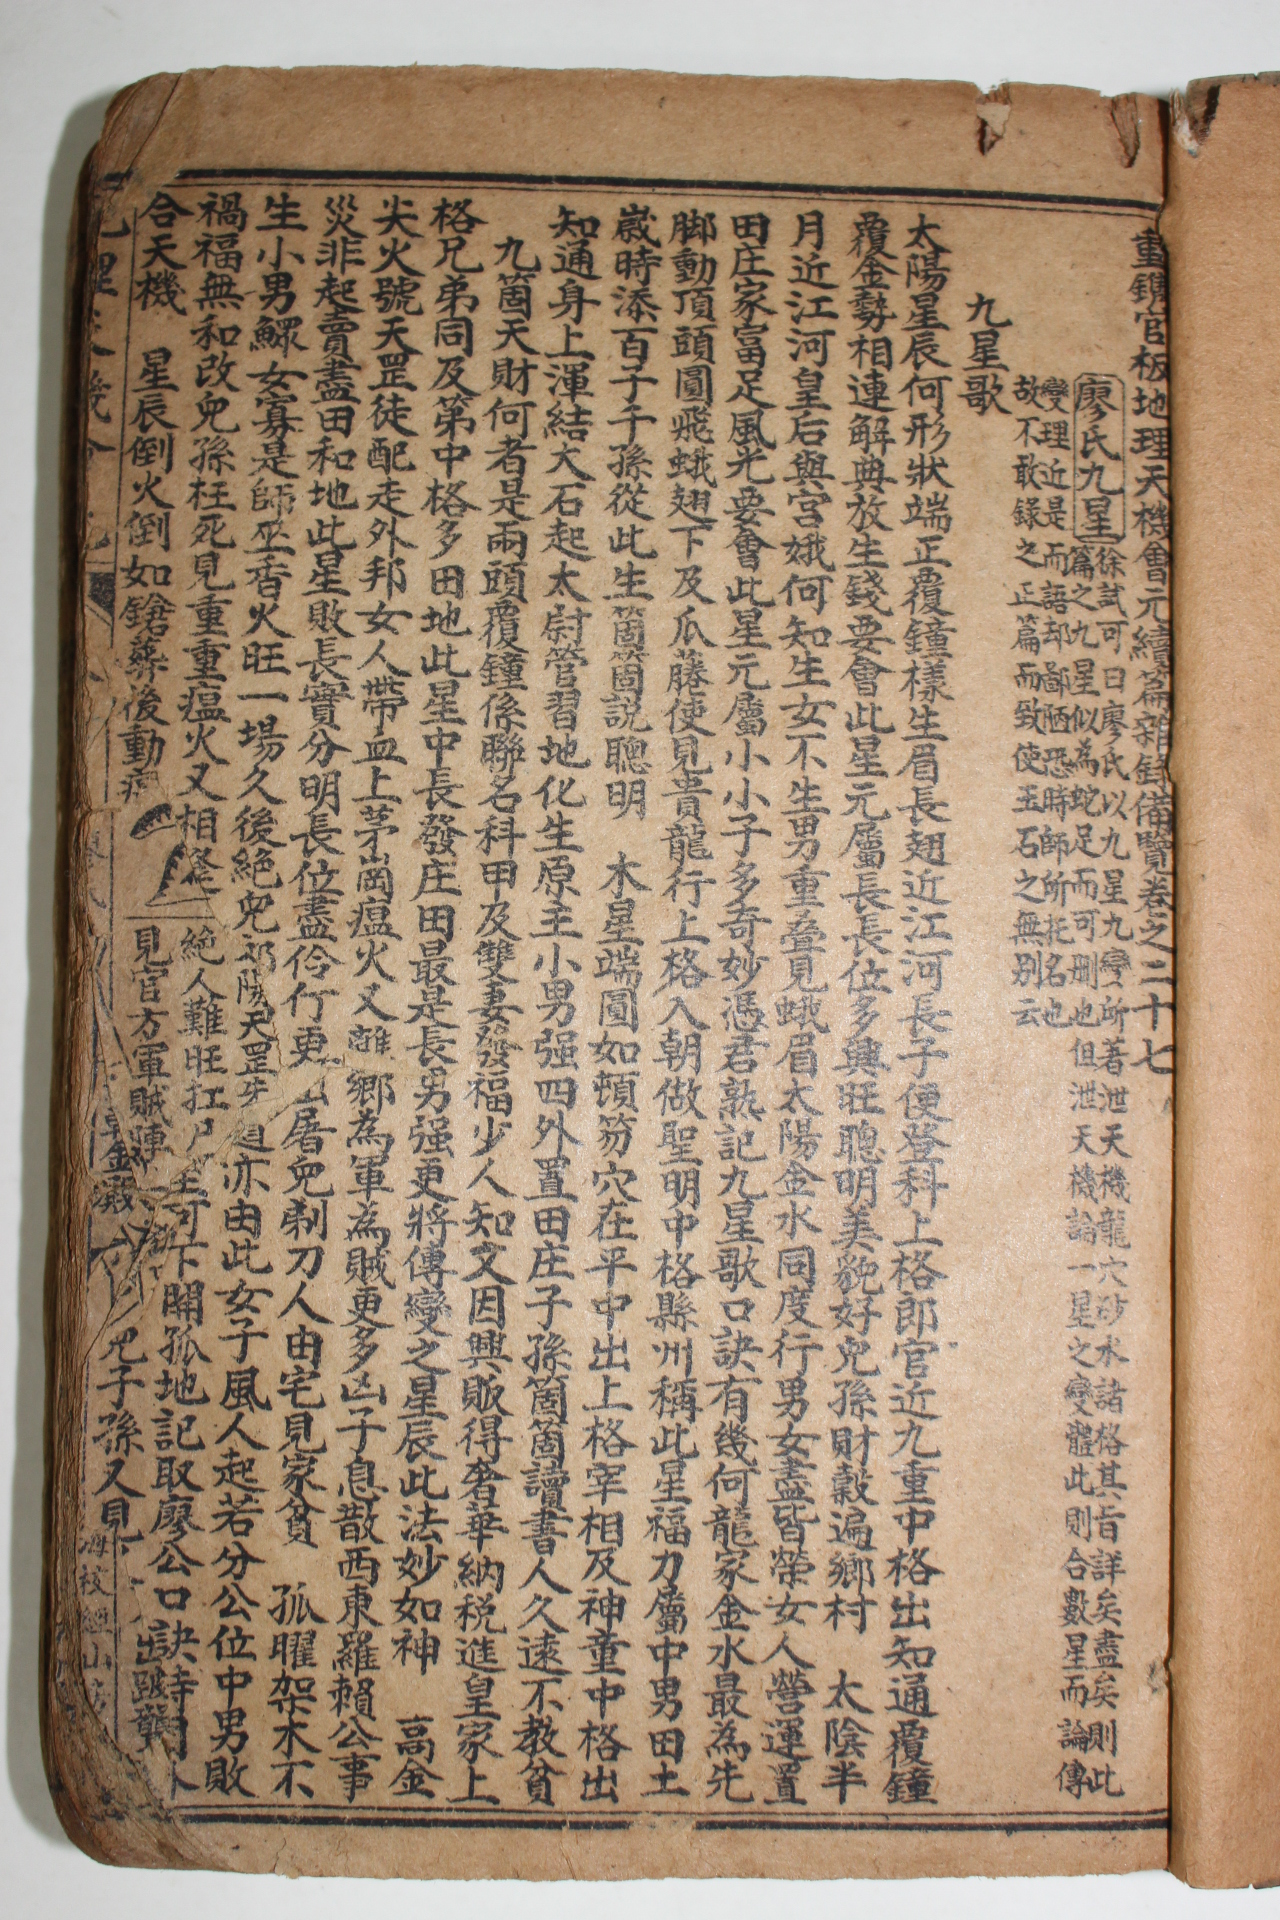 重鐫官板地理天機會元續篇雜錄備覽卷之二十七
廖氏九星
徐試可曰廖氏以九星九變所著泄天機龍穴砂水諸格其旨詳矣盡矣則此
篇之九星似為蛇足而可刪也但泄天機論一星之變體此則合數星而論傳
變理近是而語却鄙陋恐時師所托名也
故不敢錄之正篇而致使玉石之無別云
九星歌
太陽星辰何形狀端正覆鐘樣生眉長翅近江河長子便登科上格郎官近九重中格出知通覆鐘
覆金勢相連解典放生錢要會此星元屬長長位多興旺聰明美貌好兒孫財穀遍鄉村　太陰半
月近江河皇后與宮娥何知生女不生男重叠見蛾眉太陽金水同度行男女盡皆榮女人營運置
田庄家富足風光要會此星元屬小小子多奇妙憑君熟記九星歌口訣有幾何龍家金水最為先
脚動頂頭圓飛蛾翅下及瓜藤使見貴龍行上格入朝做聖明中格縣州稱此星福力屬中男田土
歲時添百子千孫從此生箇箇說聰明　木星端圓如頓笏穴在平中出上格宰相及神童中格出
知通身上渾結大石起太尉管習地化生原主小男强四外置田庄子孫箇箇讀書人久遠不教貧
九箇天財何者是兩頭覆鐘係聯名科甲及雙妻發福少人知又因興販得奢華納稅進皇家上
格兄弟同及第中格多田地此星中長發庄田最是長男强更將傳變之星辰此法妙如神　高金
尖火號天罡徒配走外邦女人帶血上茅崗瘟火又離鄉為軍為賊更多凶子息散西東羅賴公事
災非起賣盡田和地此星敗長實分明長位盡伶仃更屠兒剃刀人由宅見家貧　孤曜架木不
生小男鰥女寡是師巫香火旺一場久後絕兒天罡亦由此女子風人起若分公位中男敗
禍福無和改兒孫枉死見重重瘟火又相絕人難旺扛尸可下開孤地記取廖公口訣
合天機　星辰倒火倒如鎗葬後動見官方軍賊兒子孫又見